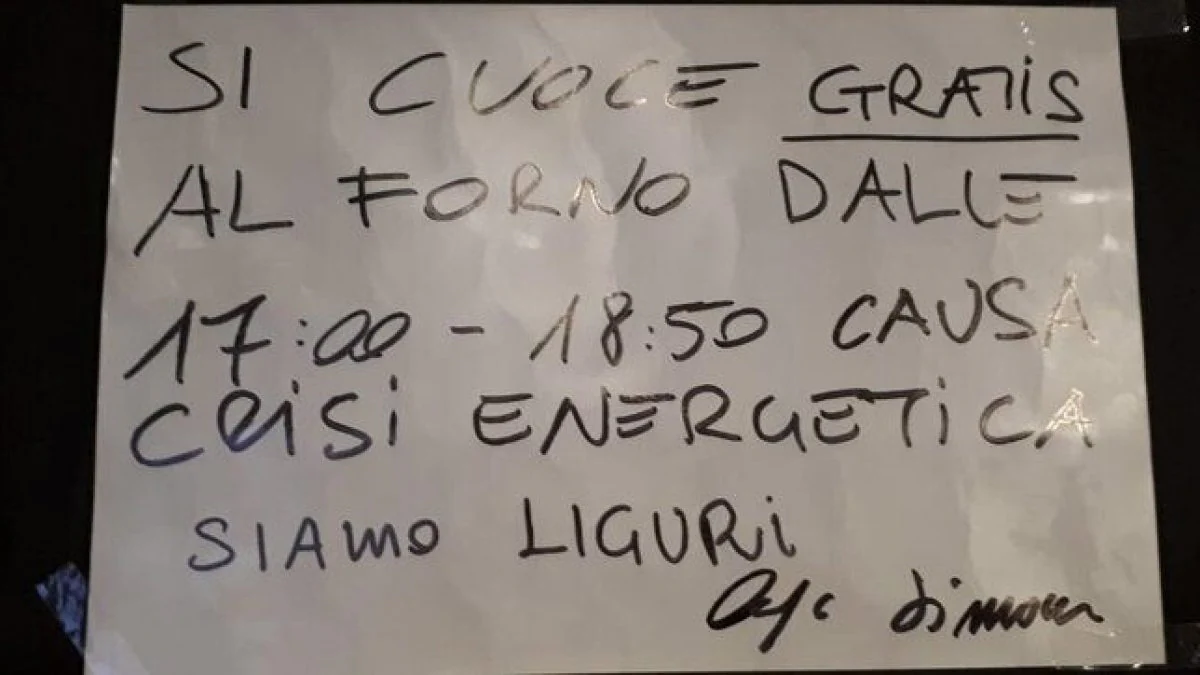 SI CUOCE GRATIS
AL FORNO DALLE
17:00 - 18:50 CAUSA
CRISI ENERGETICA
SIAMO LIGURI